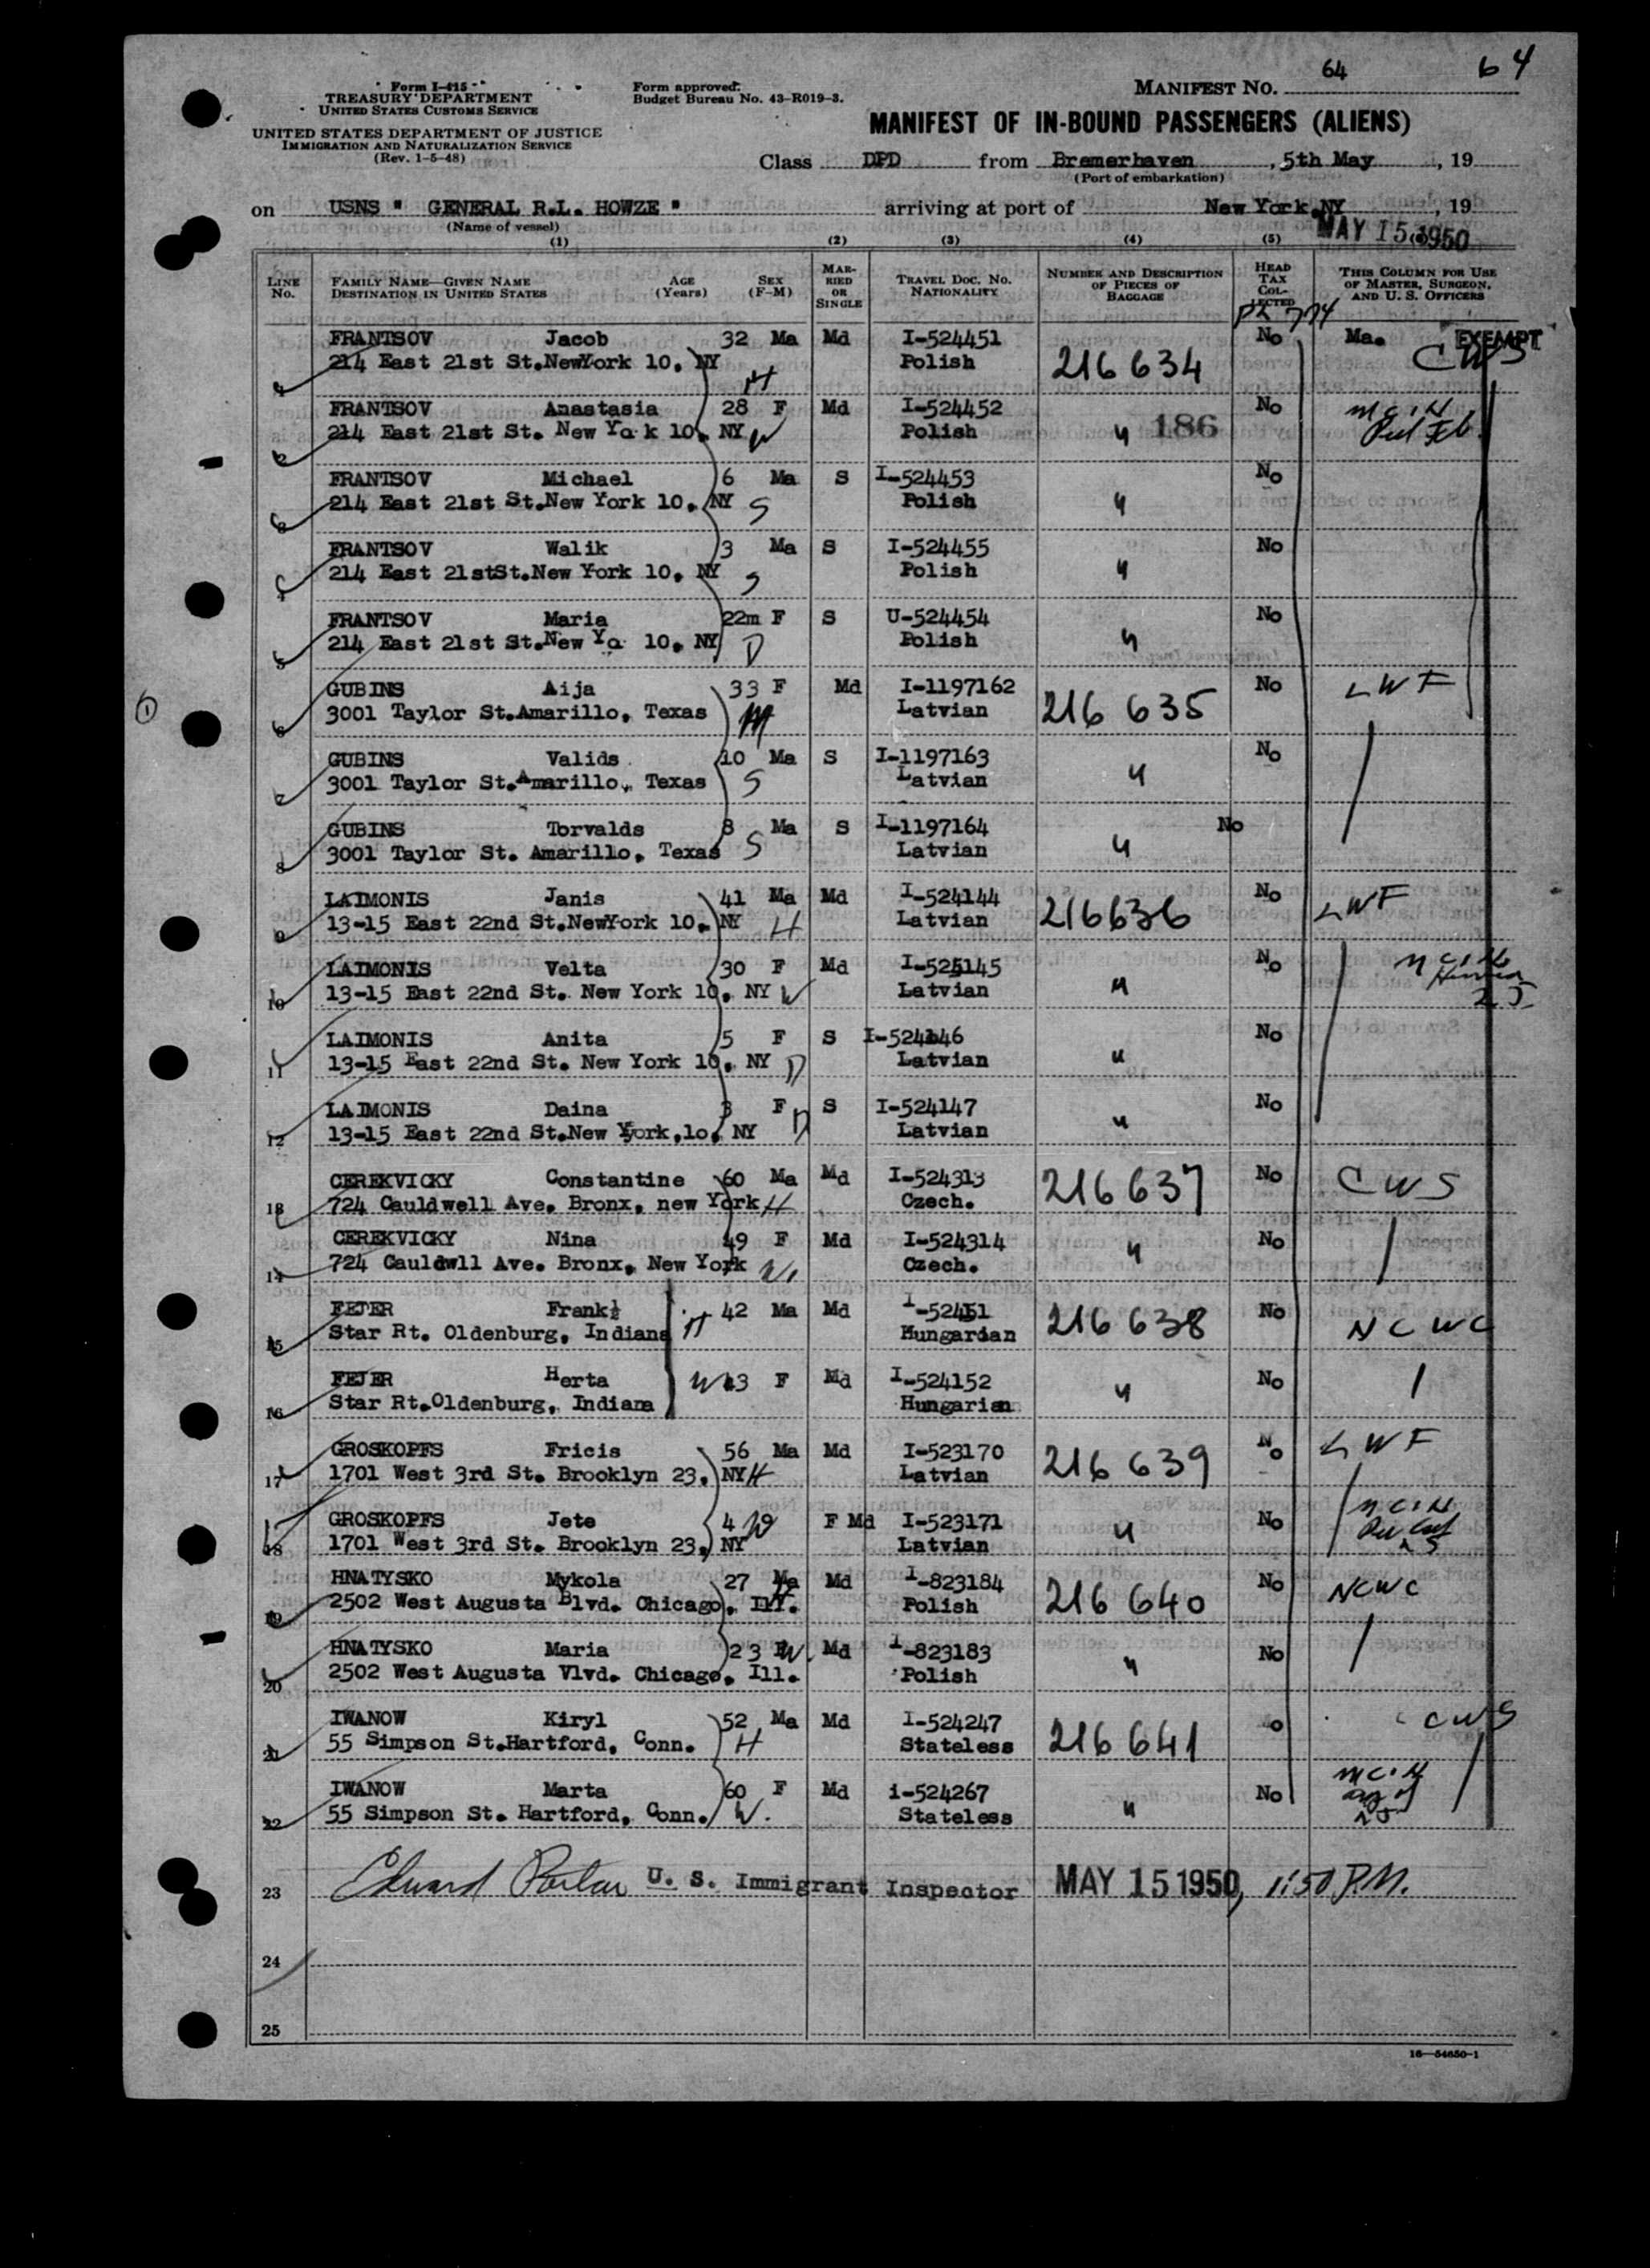 64
64
Form I-415
TREASURY DEPARTMENT
UNITED STATES CUSTOMS SERVICE
UNITED STATES DEPARTMENT OF JUSTICE
IMMIGRATION AND NATURALIZATION SERVICE
(Rev. 1-5-48)
Form approved.
Budget Bureau No. 43-R019-3.
MANIFEST NO.
MANIFEST OF IN-BOUND PASSENGERS (ALIENS)
Class DPD from Bremerhaven, 5th May, 19
(Port of embarkation)
on USNS " GENERAL R.L. HOWZE " arriving at port of New York,NY, 19
(Name of vessel)
MAY 15 1950
(1) (2) (3) (4) (5)
LINE No. FAMILY NAME—GIVEN NAME DESTINATION IN UNITED STATES AGE (Years) SEX (F-M) MARRIED OR SINGLE TRAVEL DOC. NO. NATIONALITY NUMBER AND DESCRIPTION OF PIECES OF BAGGAGE HEAD TAX COLLECTED THIS COLUMN FOR USE OF MASTER, SURGEON, AND U. S. OFFICERS
FRANTSOV Jacob 32 Ma Md I-524451 No Ma. EXEMPT
214 East 21st St.NewYork 10. NY H Polish 216 634 CWS
FRANTSOV Anastasia 28 F Md I-524452 No
214 East 21st St. New Yo k 10. NY W Polish " 186
FRANTSOV Michael 6 Ma S I-524453 No
214 East 21st St.New York 10. NY S Polish "
FRANTSOV Walik 3 Ma S I-524455 No
214 East 21stSt.New York 10. NY S Polish "
FRANTSOV Maria 22m F S U-524454 No
214 East 21st St.New Yo 10. NY D Polish "
GUBINS Aija 33 F Md I-1197162 No LWF
3001 Taylor St.Amarillo, Texas M Latvian 216 635
GUBINS Valids 10 Ma S I-1197163 No
3001 Taylor St.Amarillo, Texas S Latvian "
GUBINS Torvalds 8 Ma S I-1197164 No
3001 Taylor St. Amarillo, Texas S Latvian "
LAIMONIS Janis 41 Ma Md I-524144 No LWF
13-15 East 22nd St.NewYork 10. NY H Latvian 216636
LAIMONIS Velta 30 F Md I-525145 No
13-15 East 22nd St. New York 10. NY W Latvian "
LAIMONIS Anita 5 F S I-524146 No
13-15 East 22nd St. New York 10. NY D Latvian "
LAIMONIS Daina 3 F S I-524147 No
13-15 East 22nd St.New York,lo. NY D Latvian "
CEREKVICKY Constantine 60 Ma Md I-524313 No CWS
724 Cauldwell Ave. Bronx, new York H Czech. 216 637
CEREKVICKY Nina 49 F Md I-524314 No
724 Cauldwll Ave. Bronx, New York W. Czech. "
FEJER Frank 42 Ma Md I-52451 No
Star Rt. Oldenburg, Indiana H Hungarian 216 638 NCWC
FEJER Herta W 43 F Md I-524152 No
Star Rt.Oldenburg, Indiana Hungarian "
GROSKOPFS Fricis 56 Ma Md I-523170 No LWF
1701 West 3rd St. Brooklyn 23, NY H Latvian 216 639
GROSKOPFS Jete 4 W F Md I-523171 No
1701 West 3rd St. Brooklyn 23, NY Latvian "
HNATYSKO Mykola 27 Ma Md I-823184 No NCWC
2502 West Augusta Blvd. Chicago, Ill. Polish 216 640
HNATYSKO Maria 23 W. Md I-823183 No
2502 West Augusta Vlvd. Chicago, Ill. Polish "
IWANOW Kiryl 52 Ma Md I-524247 o CWS
55 Simpson St.Hartford, Conn. H Stateless 216 641
IWANOW Marta 60 F Md i-524267 No
55 Simpson St. Hartford, Conn. W. Stateless "
23 Edward U. S. Immigrant Inspector MAY 15 1950, 1:50 P.M.
24
25
16—54650-1